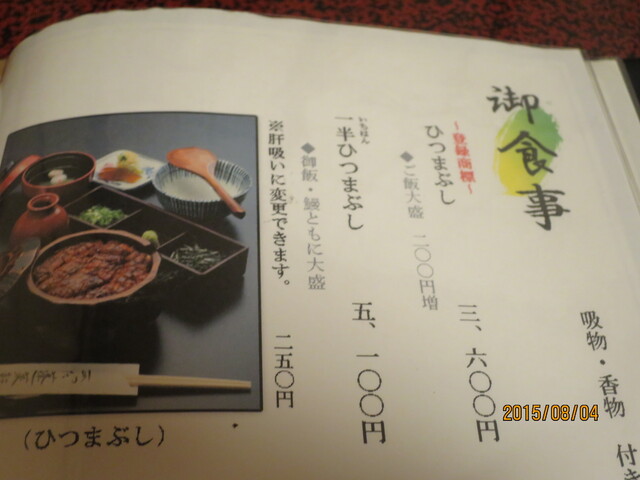 吸物・香物 付き
御食事
～登録商標～
ひつまぶし 三、六〇〇円
◆ご飯大盛 二〇〇円増
いちはん
一半ひつまぶし 五、一〇〇円
◆御飯・鰻ともに大盛
※肝吸いに変更できます。 二五〇円
(ひつまぶし)
2015/08/04